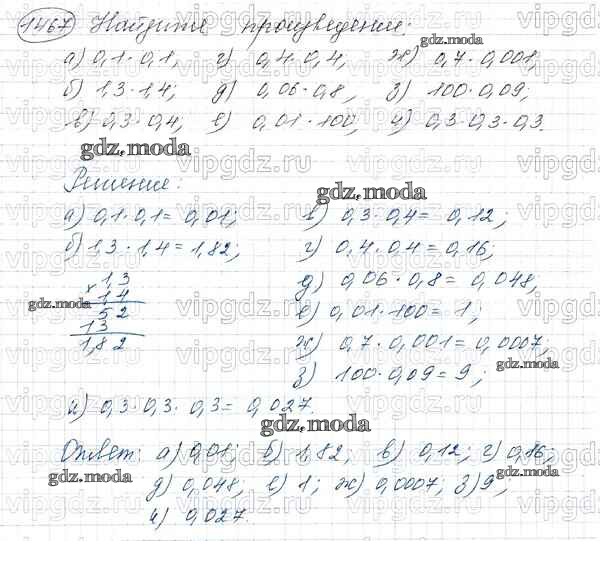 1467 Найдите произведение:
а) 0,1 · 0,1; г) 0,4 · 0,4; ж) 0,7 · 0,001;
б) 1,3 · 1,4; д) 0,06 · 0,8; з) 100 · 0,09;
в) 0,3 · 0,4; е) 0,01 · 100; и) 0,3 · 0,3 · 0,3.
Решение:
а) 0,1 · 0,1 = 0,01;
б) 1,3 · 1,4 = 1,82;
1,3
× 1,4
52
13
1,82
в) 0,3 · 0,4 = 0,12;
г) 0,4 · 0,4 = 0,16;
д) 0,06 · 0,8 = 0,048;
е) 0,01 · 100 = 1;
ж) 0,7 · 0,001 = 0,0007;
з) 100 · 0,09 = 9;
и) 0,3 · 0,3 · 0,3 = 0,027.
Ответ: а) 0,01; б) 1,82; в) 0,12; г) 0,16;
д) 0,048; е) 1; ж) 0,0007; з) 9;
и) 0,027.
gdz.moda
vipgdz.ru